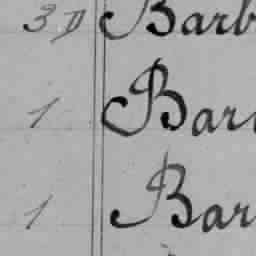 3 D Barb
1 Bar
1 Bar